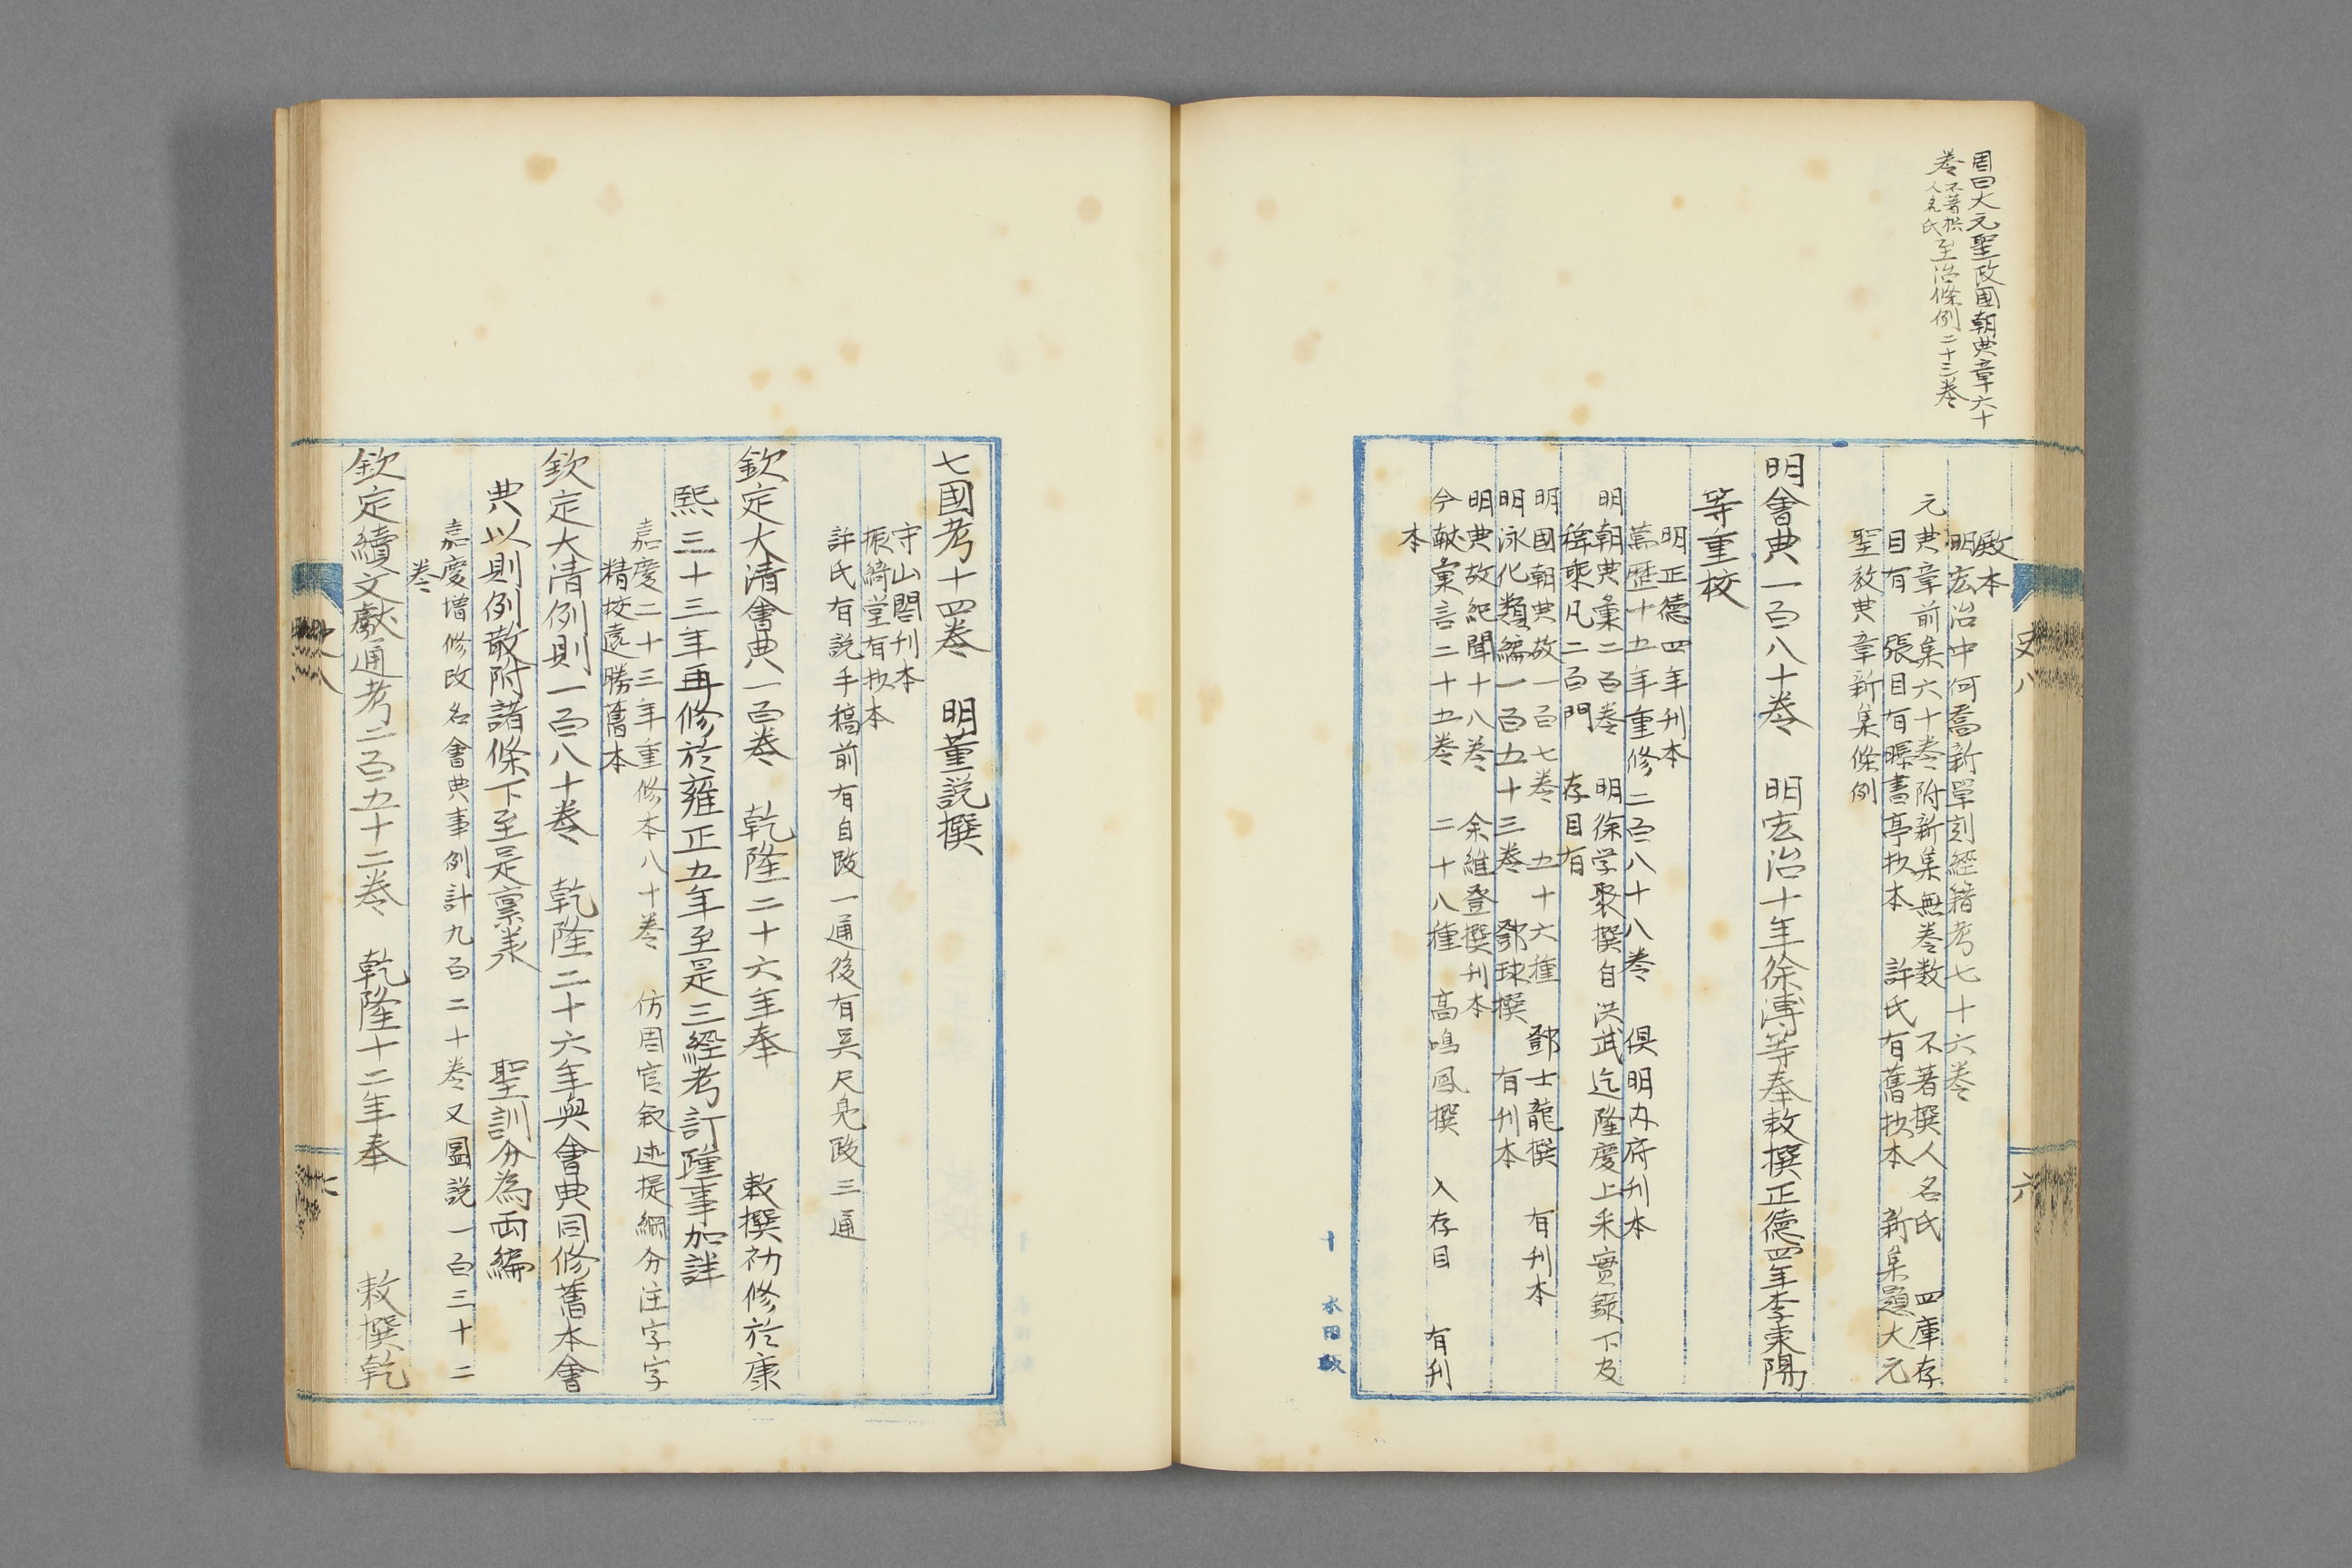 周曰大元聖政國朝典章六十
卷不著撰人名氏至治條例二十三卷
殿本
明宏治中何喬新單刻經籍考七十六卷
元典章前集六十卷附新集無卷数 不著撰人名氏 四庫存
目有 張目有曝書亭抄本 許氏有舊抄本 新集題大元
聖政典章新集條例
明會典一百八十卷 明宏治十年徐溥等奉敕撰正德四年李東陽
等重校
明正德四年刊本
萬歷十五年重修二百八十八卷 俱明内府刊本
明朝典彙二百卷 明徐学聚撰自洪武迄隆慶上采實錄下及
稗乘凡二百門 存目有
明國朝典故一百七卷 五十六種 鄧士龍撰 有刊本
明泳化類編一百五十三卷 鄧球撰 有刊本
明典故紀聞十八卷 余継登撰刊本
今献彙言二十五卷 二十八種 高鳴鳳撰 入存目 有刊
本
史八
六
七國考十四卷 明董説撰
守山閣刊本
振綺堂有抄本
許氏有説手稿前有自跋一通後有吴尺鳧跋三通
欽定大清會典一百卷 乾隆二十六年奉 敕撰初修於康
熙三十三年再修於雍正五年至是三經考訂隨事加詳
嘉慶二十三年重修本八十卷 仿周官敘述提綱分注字字
精校遠勝舊本
欽定大清例則一百八十卷 乾隆二十六年與會典同修舊本會
典以則例散附諸條下至是禀承 聖訓分為兩編
嘉慶增修改名會典事例計九百二十卷又圖説一百三十二
卷
欽定續文獻通考二百五十二卷 乾隆十二年奉 敕撰乾